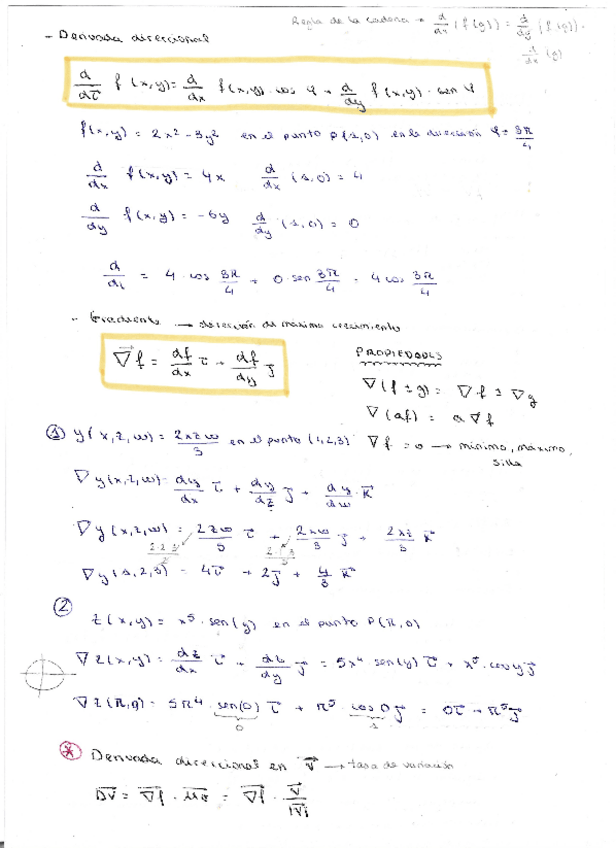 Regla de la cadena → d/dx (f(g)) = d/dy (f(g)) · d/dx (g)
- Derivada direccional
d/dτ f(x,y) = d/dx f(x,y) · cos φ + d/dy f(x,y) · sen φ
f(x,y) = 2x² - 3y² en el punto P(1,0) en la dirección φ = 3π/4
d/dx f(x,y) = 4x d/dx (1,0) = 4
d/dy f(x,y) = -6y d/dy (1,0) = 0
d/di = 4 · cos 3π/4 + 0 · sen 3π/4 = 4 cos 3π/4
- Gradiente → dirección de máximo crecimiento
∇f = df/dx i + df/dy j
PROPIEDADES
∇(f ± g) = ∇f ± ∇g
∇(af) = a ∇f
① y(x,z,w) = 2xzw/3 en el punto (1,2,3) ∇f = 0 → mínimo, máximo, silla
∇y(x,z,w) = dy/dx i + dy/dz j + dy/dw k
∇y(x,z,w) = 2zw/3 i + 2xw/3 j + 2xz/3 k
∇y(1,2,3) = 4i + 2j + 4/3 k
②
z(x,y) = x⁵ · sen(y) en el punto P(π,0)
∇z(x,y) = dz/dx i + dz/dy j = 5x⁴ sen(y) i + x⁵ · cos y j
∇z(π,0) = 5π⁴ · sen(0) i + π⁵ · cos 0 j = 0i + π⁵j
0 1
* Derivada direccional en v → tasa de variación
Dv = ∇f · uv = ∇f · v/|v|